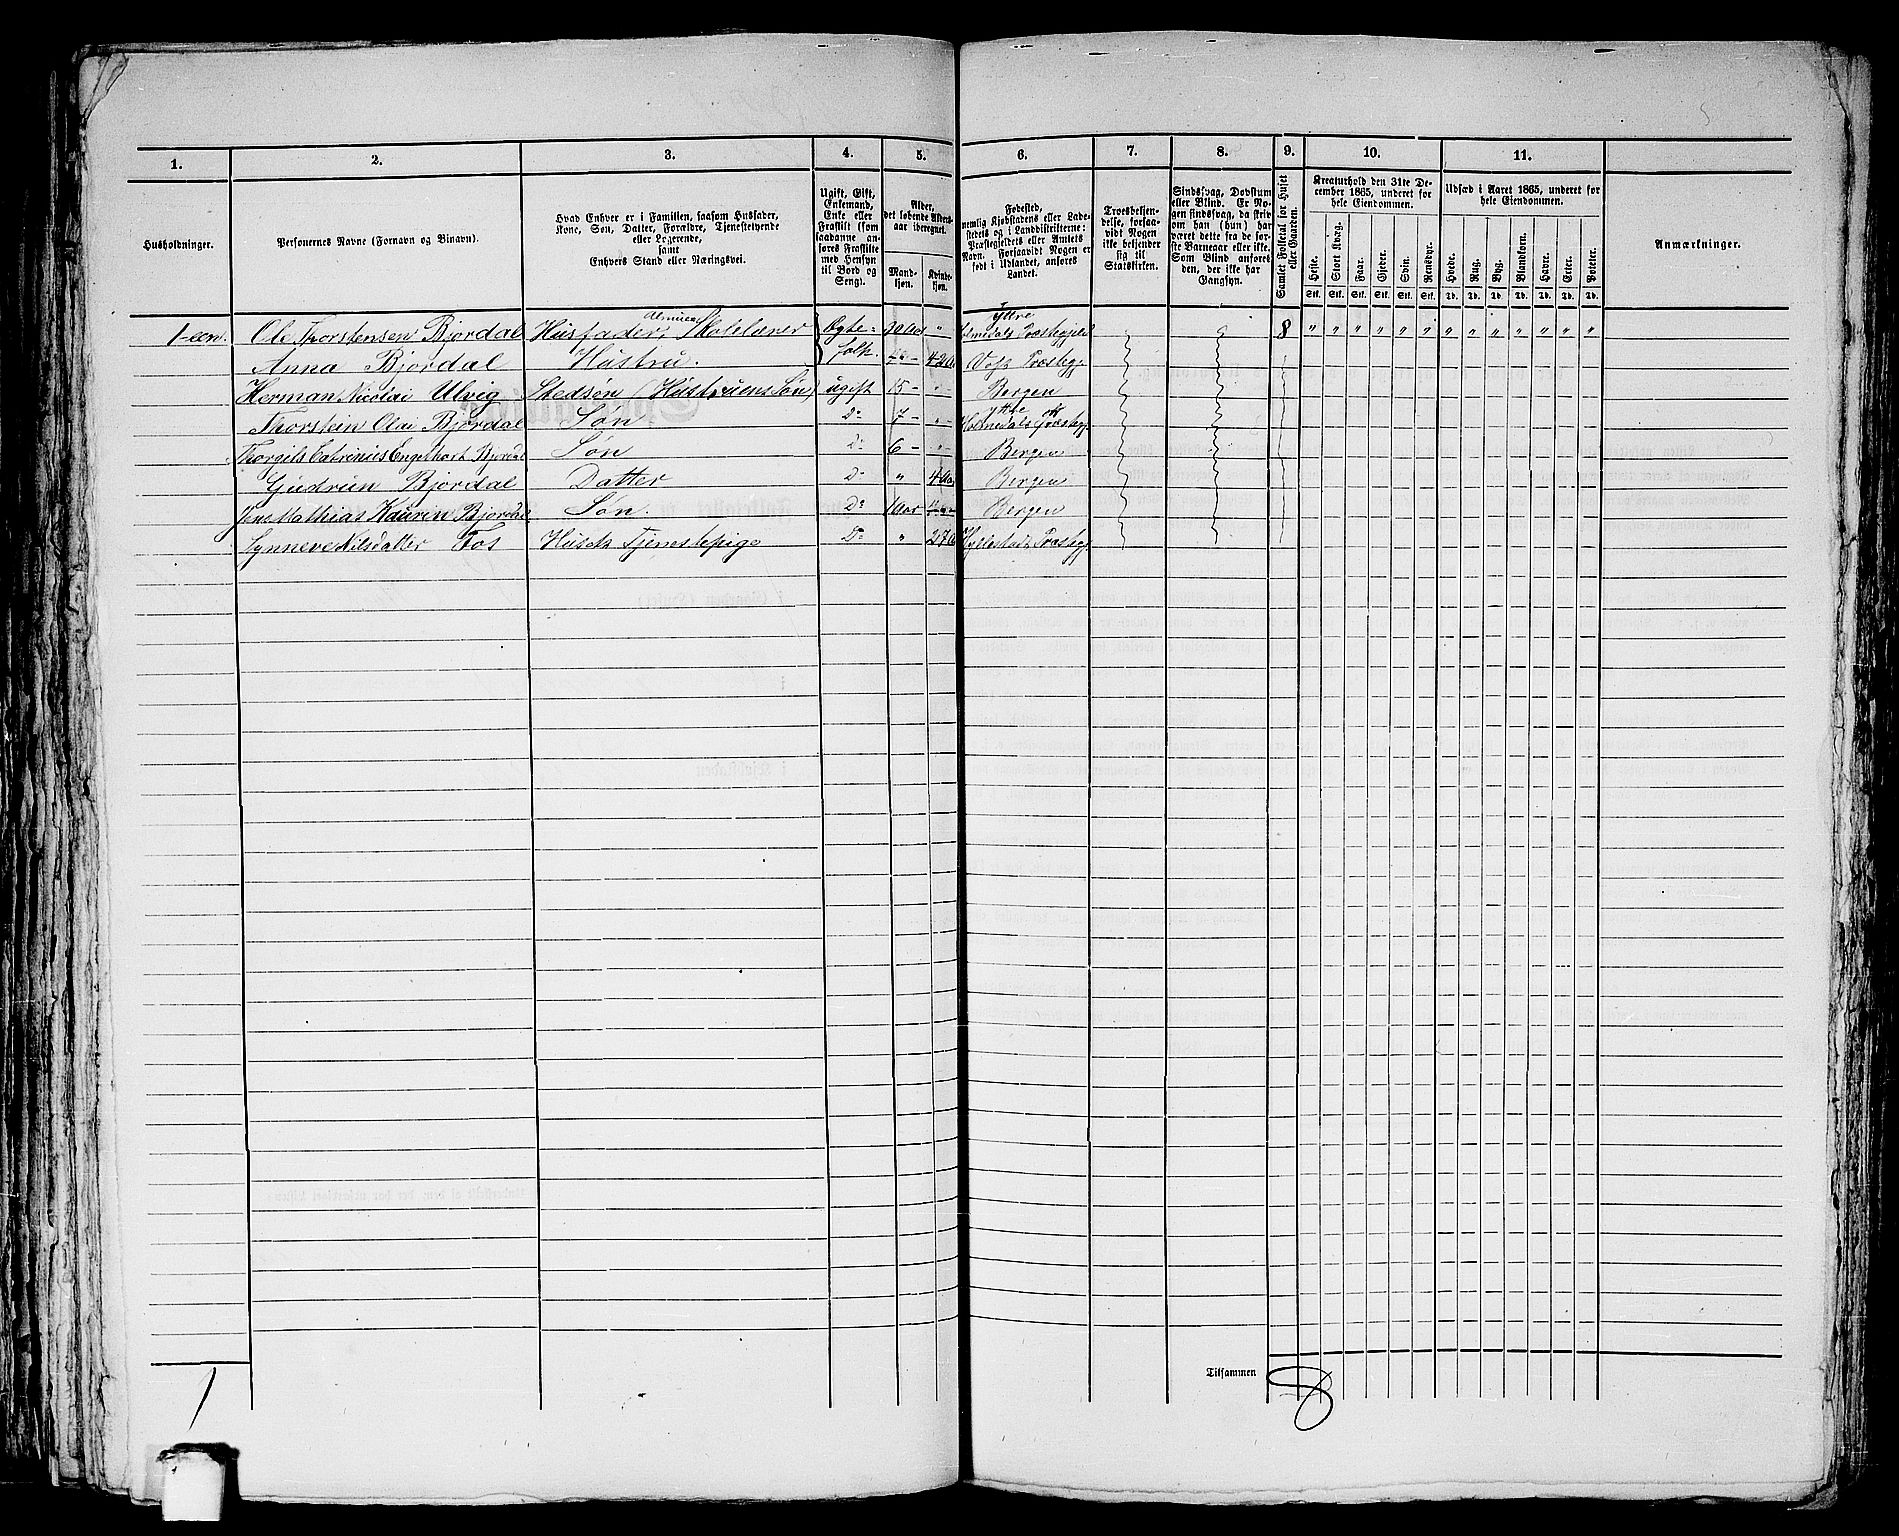 1. 2. 3. 4. 5. 6. 7. 8. 9. 10. 11.
Husholdninger.
Personernes Navne (Fornavn og Binavn).
Hvad Enhver er i Familien, saasom Husfader,
Kone, Søn, Datter, Forældre, Tjenestetyende
eller Logerende,
samt
Enhvers Stand eller Næringsvei.
Ugift, Gift,
Enkemand,
Enke eller
Fraskilt (som
saadanne an-
føres Fraskilte
med Hensyn
til Bord og
Seng).
Alder,
det løbende Alders-
aar iberegnet.
Mand-
kjøn.
Kvinde-
kjøn.
Fødested,
nemlig Kjøbstadens eller Lade-
stedets og i Landdistrikterne:
Præstegjeldets eller Amtets
Navn. Forsaavidt Nogen er
født i Udlandet, anføres
Landet.
Troesbekjen-
delse, forsaa-
vidt Nogen
ikke bekjender
sig til
Statskirken.
Sindssvag, Døvstum
eller Blind. Er No-
gen sindssvag, da skriv
om han (hun) har
været dette fra de før-
ste Barneaar eller ikke.
Som Blind anføres
den, der ikke har
Gangsyn.
Samlet Folketal for Huset
eller Gaarden.
Kreaturhold den 31te De-
cember 1865, underet for
hele Eiendommen.
Heste. Stort Kvæg. Faar. Gjeder. Svin. Rensdyr.
Stk. Stk. Stk. Stk. Stk. Stk.
Udsæd i Aaret 1865, underet for
hele Eiendommen.
Hvede. Rug. Byg. Blandkorn. Havre. Erter. Poteter.
Td. Td. Td. Td. Td. Td. Td.
Anmærkninger.
Almue Yttre
1-een. Ole Thorstensen Bjordal Husfader, Skolelærer Egte- Aar " Holmedals Præstegjeld 8 " " " " " " " " " " " " "
Anna Bjordal Hustru. folk. 42 Voss Præstegj.
Herman Nicolai Ulvig Stedsøn (Hustruens Søn) ugift 15 - " Bergen
Thorstein Olai Bjordal Søn Do 7 - " Yttre Holmedals Præstegj.
Thorgils Catrinus Engelhart Bjordal Søn Do 6 - " Bergen
Gudrun Bjordal Datter Do " 4 Aar Bergen
Jens Mathias Kaurin Bjordal Søn. Do 1 Aar Bergen
Synneve Nilsdatter Fos Husets Tjenestepige Do " 27 Hyllestad Præstegj.
Tilsammen 8
1